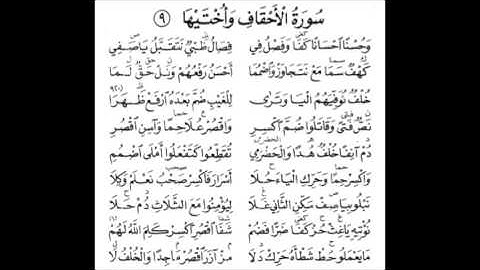 سُورَةُ الْأَحْقَافِ وَأُخْتَيْهَا ٩
وَحُسْنًا احْسَانًا كَفَا وَفَصْلُ فِي فِصَالُ ظَبْيٌ نَتَقَبَّلُ يَا صَفِي
كَهْفٌ سَمَا مَعْ نَتَجَاوَزْ وَاضْمُمَا أَحْسَنُ رَفْعُهُمْ وَنَلْ حَقٌّ لَمَا
خُلْفٌ نُوَفِّيهُمُ الْيَا وَتَرَى لِلْغَيْبِ ضُمَّ بَعْدَهُ ارْفَعْ ظَهَرَا ٩٢٠
نَصُّ فَتًى وَقَاتَلُوا ضُمَّ اكْسِرِ وَاقْصُرْ عُلَا حِمًا وَآسِنِ اقْصُرِ
دُمْ آنِفًا خُلْفُ هُدًا وَالْحَضْرَمِي تُقَطِّعُوا كَتَفْعَلُوا أُمْلَى اضْمُمِ
وَاكْسِرْ حِمًا وَحَرِّكِ الْيَاءَ حُلَا أَسْرَارَ فَاكْسِرْ صَحْبُ نَعْلَمْ وَكِلَا
نَبْلُو بِيَا صِفْ سَكِّنِ الثَّانِي غَلَا لِيُؤْمِنُوا مَعَ الثَّلَاثِ دُمْ حَلَا
نُؤْتِيهِ يَا غِثْ حُزْ كَفَا ضَرًّا فَضُمْ شَفَا اقْصُرِ اكْسِرْ كَلِمَ اللَّهِ لَهُمْ
مَا يَعْمَلُو حُطْ شَطْأَهُ حَرِّكْ دَلَا مِزْ آزَرَ اقْصُرْ مَاجِدًا وَالْخُلْفُ لَا